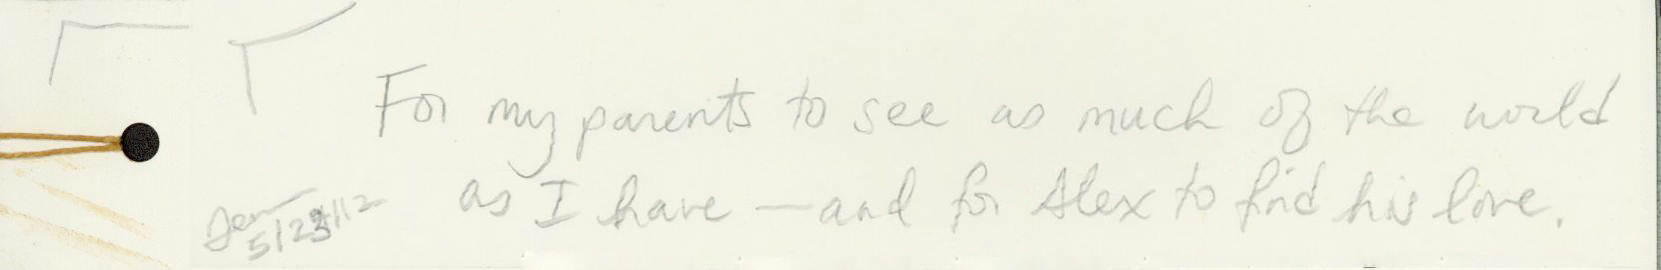 For my parents to see as much of the world
as I have — and for Alex to find his love.
Jen
5/23/12